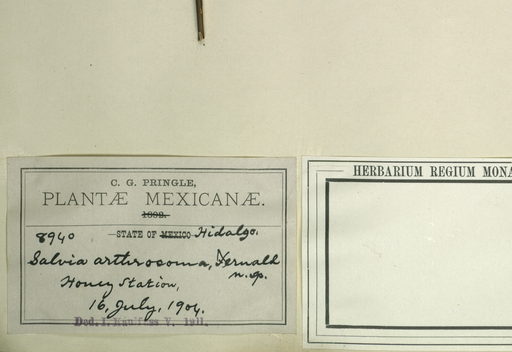 C. G. PRINGLE,
PLANTÆ MEXICANÆ.
STATE OF MEXICO Hidalgo.
8940
Salvia arthrosoma, Fernald
n. sp.
Honey Station,
16, July, 1904.
Ded. I. V. 1911.
HERBARIUM REGIUM MONA